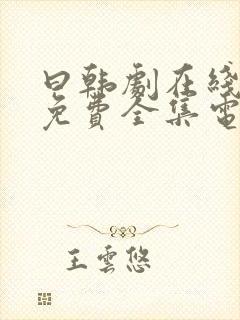 日韩劇在綫
免費全集電
王雲悠